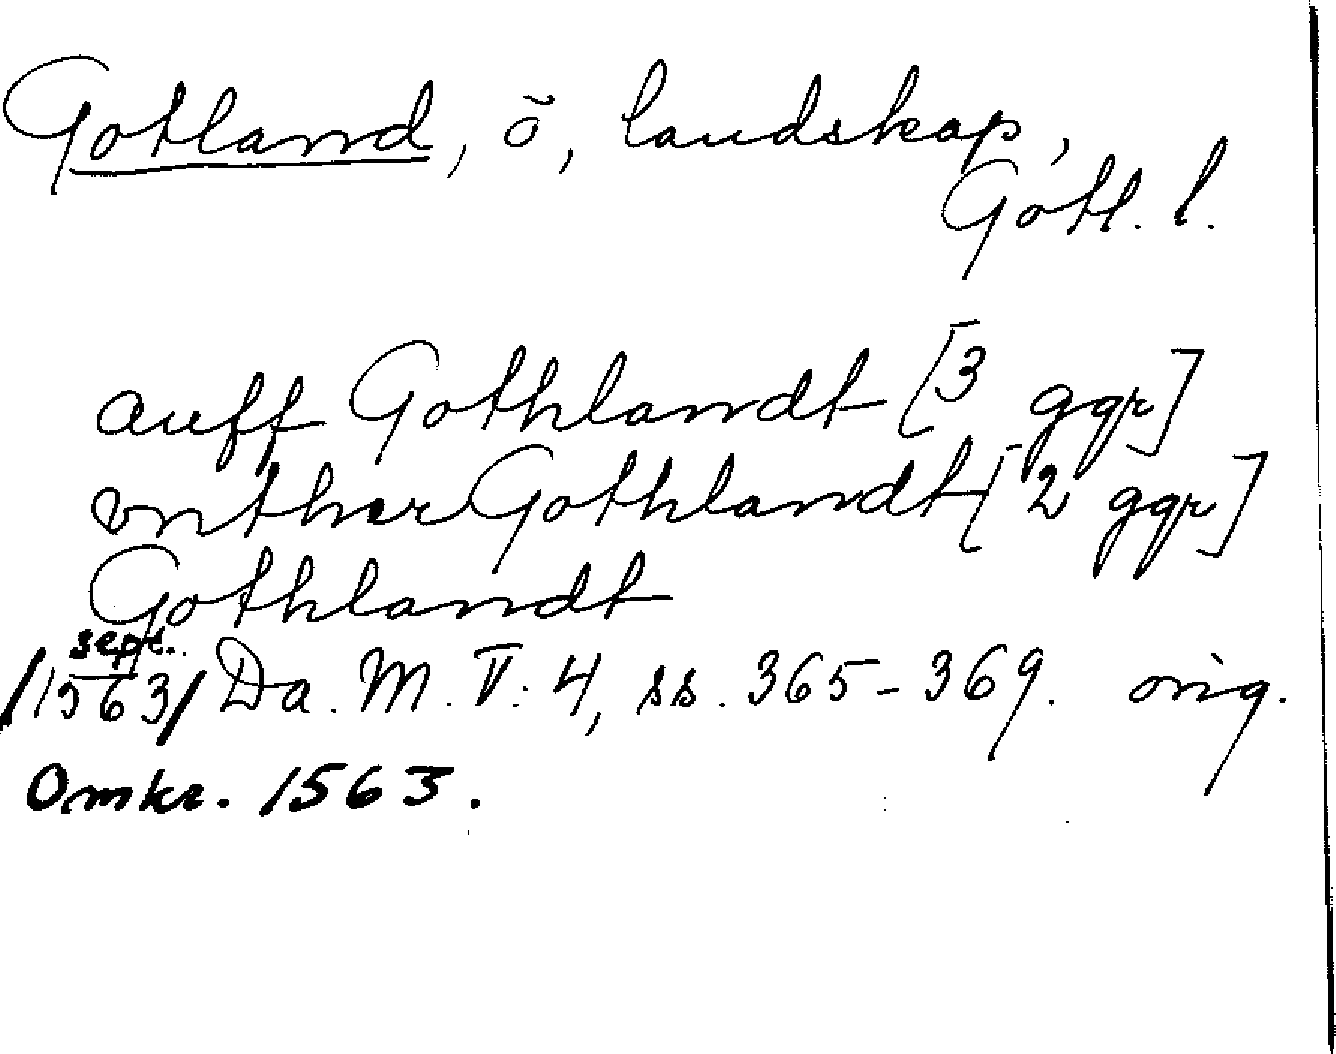 Gotland, ö, landskap,
Gotl. l.
auff Gothlandt [3 ggr]
vnther Gothlandt [2 ggr]
Gothlandt
sept.
/1563/ Da. M. V. 4, ss. 365-369. orig.
Omkr. 1563.